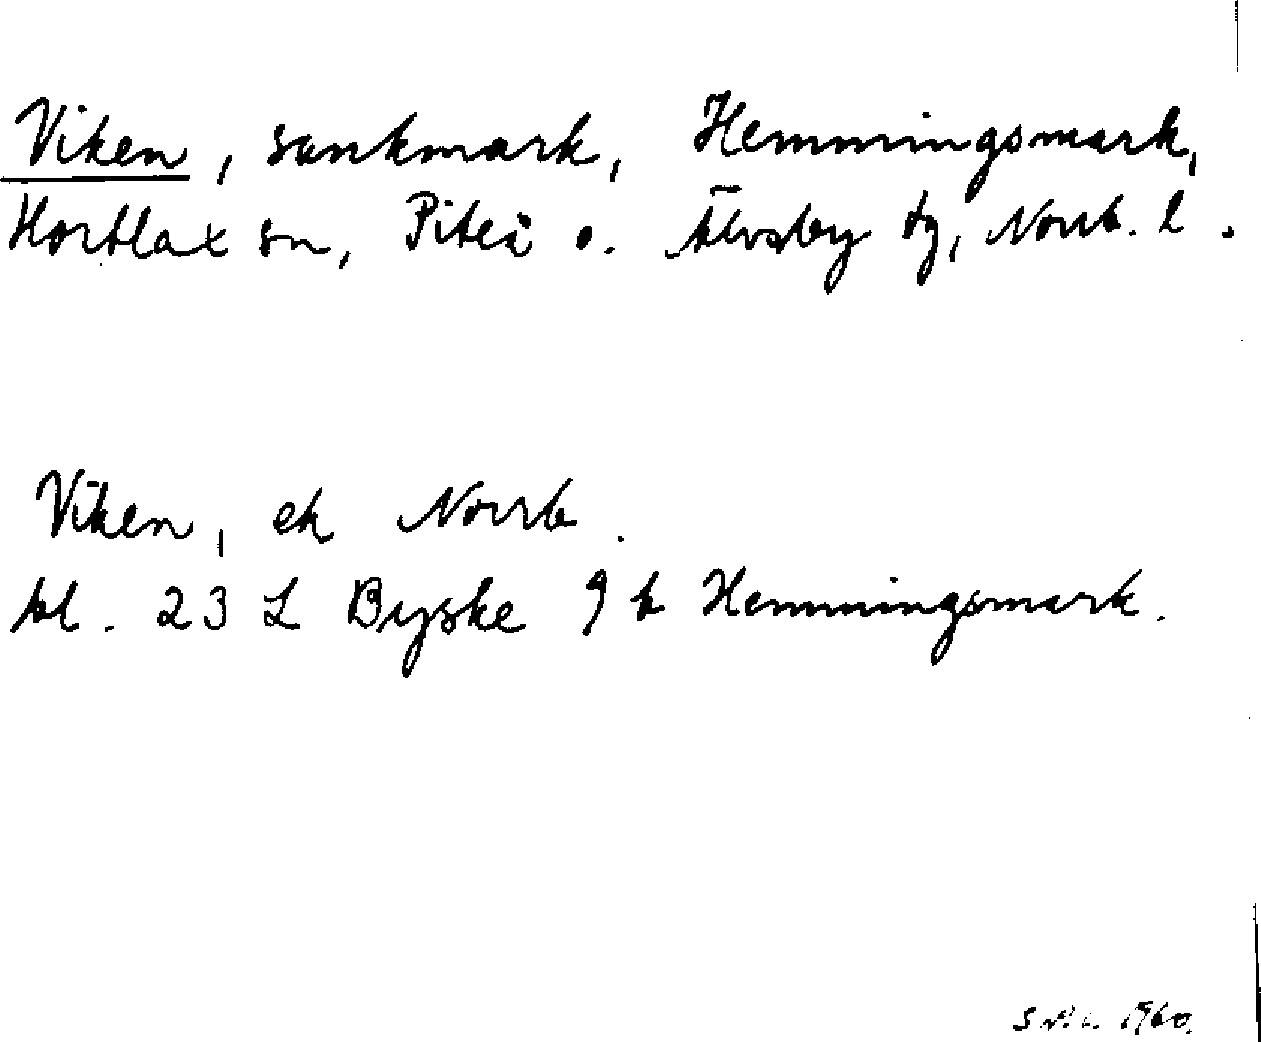 Viken, sankmark, Hemmingsmark,
Hortlax sn, Piteå o. Älvsby tg, Norrb. l.
Viken, ek Norrb.
bl. 23 L Byske 9 b Hemmingsmark.
1960.